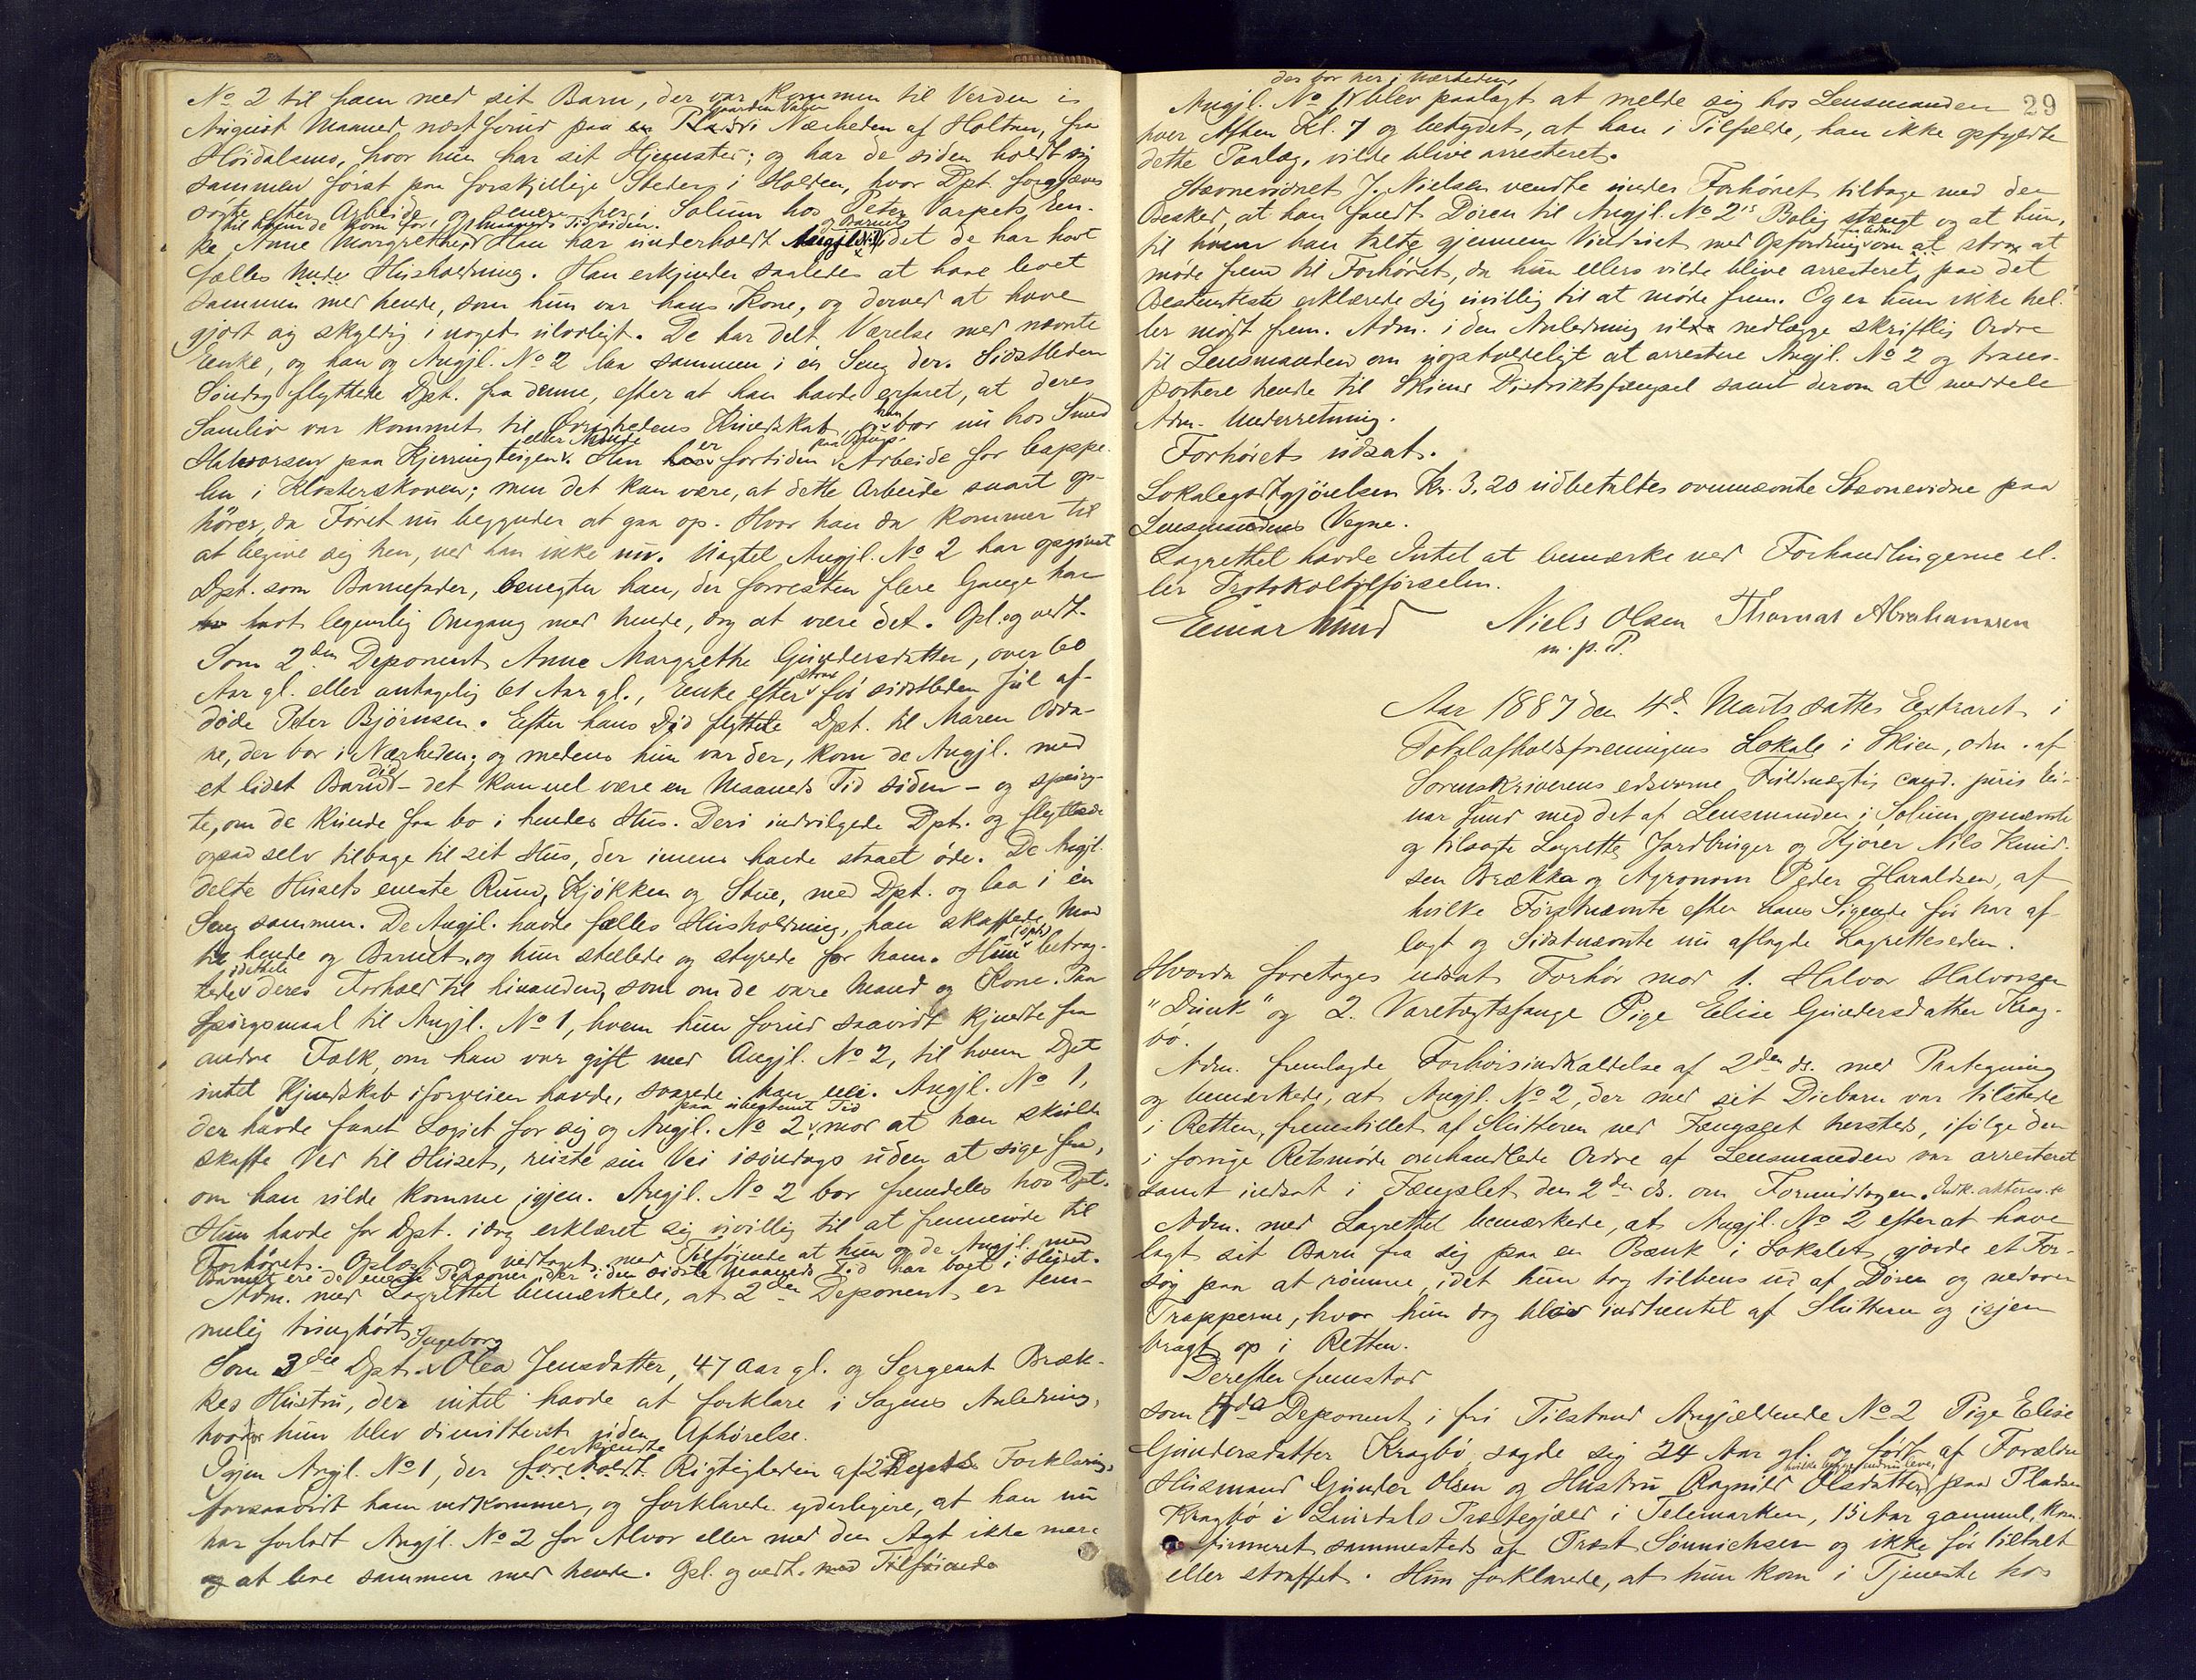 No 2 til fælls med sit Barn, der var kommen til Verden i
Gaarden Valen
August Maaned næst forud paa en Plads i Nærheden af Holtan, fra
Høidalsmo, hvor hun har sit Hjemsted; og har de siden holdt sig
sammen først paa forskjellige Steder i Holden, hvor Dpt. forgjæves
søgte efter Arbeide, og senere her i Solum hos Peter Varpets En-
til hvem de kom for 1 Maaneds Tid siden. og Barnet
ke Anne Margrethe. Han har underholdt Angjl. No 2, idet de har havt
fælles Husholdning. Han erkjender saaledes at have levet
sammen med hende, som hun var hans Kone, og derved at have
gjort sig skyldig i noget ulovligt. De har delt Værelse med nævnte
Enke, og han og Angjl. No 2 laa sammen i en Seng der. Sidstleden
Søndag flyttede Dpt. fra denne, efter at han havde erfaret, at deres
Samliv var kommet til Øvrighedens Kundskab, han bor nu hos Smed
Halvorsen paa Kjerringteigen. Han er fortiden paa Arbeide for Cappe-
len i Klosterskoven; men det kan være, at dette Arbeide snart op-
hører, da Føret nu begynder at gaa op. Hvor han da kommer til
at begive sig hen, ved han ikke nu. Uagtet Angjl. No 2 har opgivet
Dpt. som Barnefader, benegter han, der forresten flere Gange har
havt legemlig Omgang med hende, dog at være det. Opl. og vedt.
Som 2den Deponent Anne Margrethe Gundersdatter, over 60
strax
Aar gl. eller antagelig 61 Aar gl., Enke efter før sidstleden Jul af-
døde Peter Bjørnsen. Efter hans Død flyttede Dpt. til Maren Odda-
ne, der bor i Nærheden; og medens hun var der, kom de Angjl. med
et lidet Barn did - det kan vel være en Maaneds Tid siden - og spurg-
te, om de kunde faa bo i hendes Hus. Deri indvilgede Dpt. og flyttede
ogsaa selv tilbage til sit Hus, der imens havde staaet øde. De Angjl.
delte Husets eneste Rum, Kjøkken og Stue, med Dpt. og laa i en
Seng sammen. De Angjl. havde fælles Husholdning, han skaffede Mad
til hende og Barnet, og hun stellede og styrede for ham. Hun (Dpt.) betrag-
idethele
tede deres Forhold til hinanden, som om de vare Mand og Kone. Paa
Spørgsmaal til Angjl. No 1, hvem hun forud saavidt kjendte fra
andre Folk, om han var gift med Angjl. No 2, til hvem Dpt
intet Kjendskab iforveien havde, svarede han nei. Angjl. No 1,
paa ubestemt Tid
der havde faaet Logiet for sig og Angjl. No 2, mod at han skulde
skaffe Ved til Huset, reiste sin Vei isøndags uden at sige fra,
om han vilde komme igjen. Angjl. No 2 bor fremdeles hos Dpt.
Hun havde for Dpt. idag erklæret sig uvillig til at fremmøde til
Forhøret. Oplæst og vedtaget med Tilføjende at hun og de Angjl. med
Barnet ere de eneste Personer, der i den sidste Maaneds Tid har boet i Huset.
Adm. med Lagrettet bemærkede, at 2den Deponent er tem-
melig tunghørt.
Ingeborg
Som 3die Dpt. Olea Jensdatter, 47 Aar gl. og Sergeant Bræk-
kes Hustru, der intet havde at forklare i Sagens Anledning,
hvorfor hun blev dimitteret uden Afhørelse.
erkjendte
Igjen Angjl. No 1, der foreholdt Rigtigheden af 2 Depts Forklaring,
forsaavidt ham vedkommer, og forklarede yderligere, at han nu
har forladt Angjl. No 2 for Alvor eller med den Agt ikke mere
at leve sammen med hende. Opl. og vedt. med Tilføiende
29
der bor her i Nærheden,
Angjl. No 1 blev paalagt at melde sig hos Lensmanden
hver Aften Kl. 7 og betydet, at han i Tilfælde, han ikke opfyldte
dette Paalæg, vilde blive arresteret.
Stævnevidnet J. Nielsen vendte under Forhøret tilbage med den
Besked, at han fandt Døren til Angjl. No 2's Bolig stængt og at hun,
til hvem han talte gjennem Vinduet med Opfordring om strax at
møde frem til Forhøret, da hun ellers vilde blive arresteret, paa det
Bestemteste erklærede sig uvillig til at møde frem. Og er hun ikke hel-
ler mødt frem. Adm. i den Anledning vilde nedlægge skriftlig Ordre
til Lensmanden om uopholdeligt at arrestere Angjl. No 2 og trans-
portere hende til Skiens Distriktsfængsel samt derom at meddele
Adm. Underretning.
Forhøret udsat.
Lokalegodtgjørelsen Kr. 3,20 udbetaltes ovennævnte Stævnevidne paa
Lensmandens Vegne.
Lagrettet havde Intet at bemærke ved Forhandlingerne el-
ler Protokoltilførselen.
Einar Sund Niels Olsen Thomas Abrahamsen
m. p. P.
Aar 1887 den 4d Marts sattes Extraret i
Totalafholdsforeningens Lokale i Skien, adm. af
Sorenskriverens edsvorne Fuldmægtig cand. juris Ei-
nar Sund med det af Lensmanden i Solum opnævnte
og tilsagte Lagrette Jordbruger og Kjører Nils Knud-
sen Brække og Agronom Peder Haraldsen, af
hvilke Førstnævnte efter hans Sigende før har af-
lagt og Sidstnævnte nu aflagde Lagretteseden.
Hvorda foretoges udsat Forhør mod 1. Halvor Halvorsen
"Dunk" og 2. Varetægtsfange Pige Elise Gundersdatter Krag-
bø.
Adm. fremlagde Forhørsindkaldelse af 2den ds. med Paategning
og bemærkede, at Angjl. No 2, der med sit Diebarn var tilstede
i Retten, fremstillet af Slutteren ved Fængslet hersteds, ifølge den
i forrige Retsmøde omhandlede Ordre af Lensmanden var arresteret
samt indsat i Fængslet den 2den ds. om Formiddagen. Indk. akteres.
Adm. med Lagrettet bemærkede, at Angjl. No 2 efterat have
lagt sit Barn fra sig paa en Bænk i Lokalet, gjorde et For-
søg paa at rømme, idet hun tog tilbens ud af Døren og nedover
Trapperne, hvor hun dog blev indhentet af Slutteren og igjen
bragt op i Retten.
Derefter fremstod
som 4de Deponent, i fri Tilstand Angjældende No 2 Pige Elise
Gundersdatter Kragbø, sagde sig 24 Aar gl. og født af Forældre
hvilke begge endnu leve,
Husmand Gunder Olsen og Hustru Ragnild Olsdatter paa Pladsen
Kragbø i Laurdals Præstegjæld i Telemarken, 15 Aar gammel, kon-
firmeret sammesteds af Præst Sønnichsen og ikke før tiltalt
eller straffet. Hun forklarede, at hun kom i Tjeneste hos